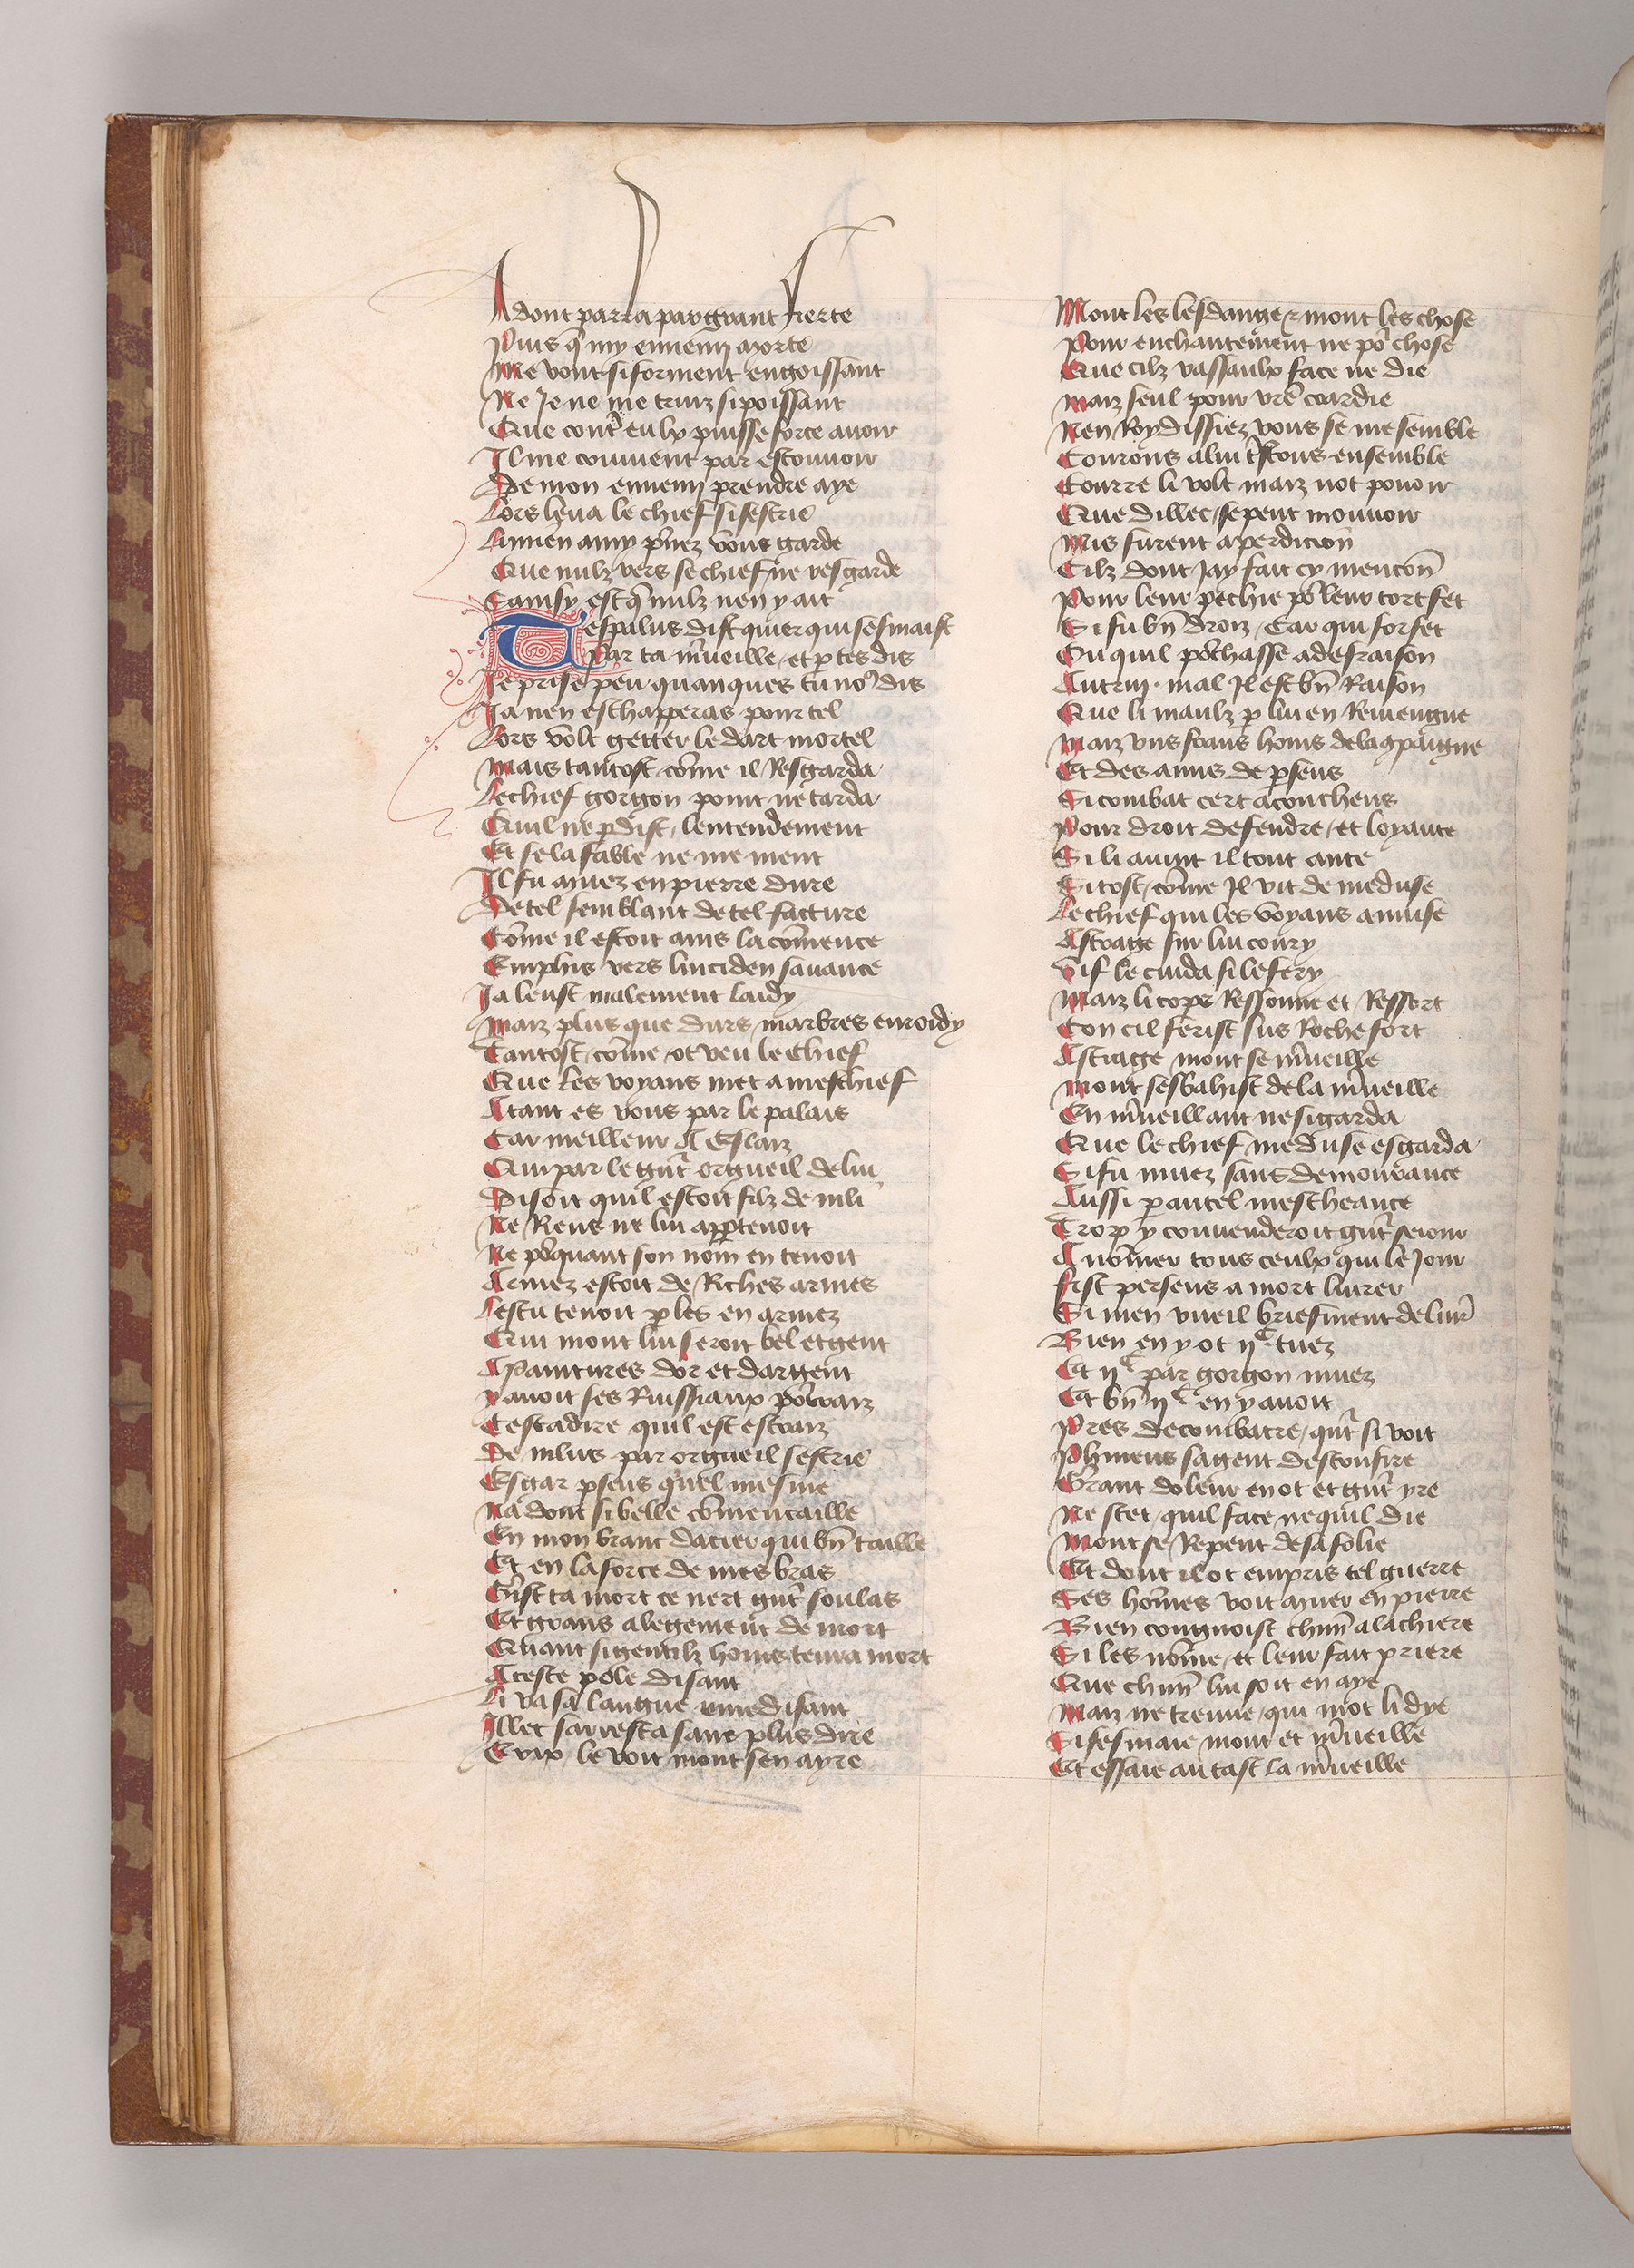 Adont parla par grant fierte
Puis q̄ my ennemy morte
Me vont si forment engoissant
Ne Je ne me truiz si poissant
Que contre eulx puisse force avoir
Il me convient par estouvoir
De mon ennemy prendre aye
Lors leva le chief si sescrie
Li mien amy prenez vous garde
Que nulz vers se chief ne resgarde
Tamsy est q̄ nulz nen y ait
Tespalus dist quier qui sesmaist
Par ta mveille et p tes dis
Je prise peu quanques tu no9 dis
Ja nen eschapperas pour tel
Lors volt getter le dart mortel
Mais tantost cōme il Resgarda
Le chief gorgon point ne tarda
Quil ne pdist lentendement
Et se la fable ne me ment
Il fu muez en pierre dure
De tel semblant de tel facture
Cōme il estoit ains la cōmence
Emphis vers linciden savance
Ja leust malement laidy
Maiz plus que durs marbres enroidy
Tantost cōme ot veu le chief
Que les voyans met a meschief
Atant es vous par le palais
Car meilleur A Eslaiz
Qui par le grāt orgueil de lui
Disoit quil estoit filz de nili
Ne Rens ne lui appartenoit
Ne porquant son nom en tenoit
Armez estoit de Riches armes
Lescu tenoit p les en armez
Qui mont lui seroit bel et gent
A paintures dor et dargent
y avoit ses Ruissiaux portraiz
Cest a dire quil est estraiz
De nilus par orgueil sescrie
Esgar pseus quel mesme
Na dont si belle cōmencaille
En mon branc dacier qui bn̄ taille
Et en la force de mes bras
Gist ta mort ce nert grāt soulas
Et grans alegement de mort
Quant si gentilz homs tenra mort
A ceste pole disant
Li va sa langue enredisant
Illec sarresta sans plus dire
Erix le voit mont sen ayre
Mont les lesdange et mont les chose
Pour enchantement ne por chose
Que cilz vassaulx face ne die
Maiz seul pour vrē coardie
Nen Roydissiez vous se me semble
Courons a lui trestous ensemble
Courre li volt maiz not povoir
Que dillec se peut mouvoir
Mis furent a perdicion
Cilz dont Jay fait cy mencōn
Pour leur pechie por leur tort fet
Si fu bn̄ droiz Car qui forfet
Ou quil porchasse a desraison
Autruy mal Il est bn̄ Raison
Que li maulz p lui en Reviengne
Maiz uns frans homs de la 9paigne
Et des amis de pseus
Si combat cert acontheus
Pour droit defendre et loyaute
Si li avint il tout ante
Si tost cōme Il vit de meduse
Le chief qui les voyans amuse
Astrage sur lui coury
Vif le cuida si le fery
Maiz li cops Ressonne et Ressort
Con cil ferist sus Roche fort
Astiage mont se mveille
Mont sesbahist de la mveille
En mveillant ne si garda
Que le chief meduse esgarda
Si fu muez sans demourance
Aussi p autel mescheance
Trop y convenderoit grāt seiour
A nōmer tous ceulx qui le Jour
fist perseus a mort livrer
Si men vueil briefment delivr̄
Bien en y ot ijc tuez
Et ijc par gorgon muez
Et bn̄ ijc en y avoit
Pres de combatre quāt si voit
Phineus sa gent desconfire
Grant doleur en ot et grāt yre
Ne scet quil face ne quil die
Mont se Repent de sa folie
Et dont il ot empris tel guerre
Ses hōmes voit muer en pierre
Bien congnoist chūn a la chiere
Si les nōme et leur fait priere
Que chūn lui soit en aye
Maiz ne treuve qui mot li dye
Si sesmaie mont et mveille
Et essaie au tast la mveille